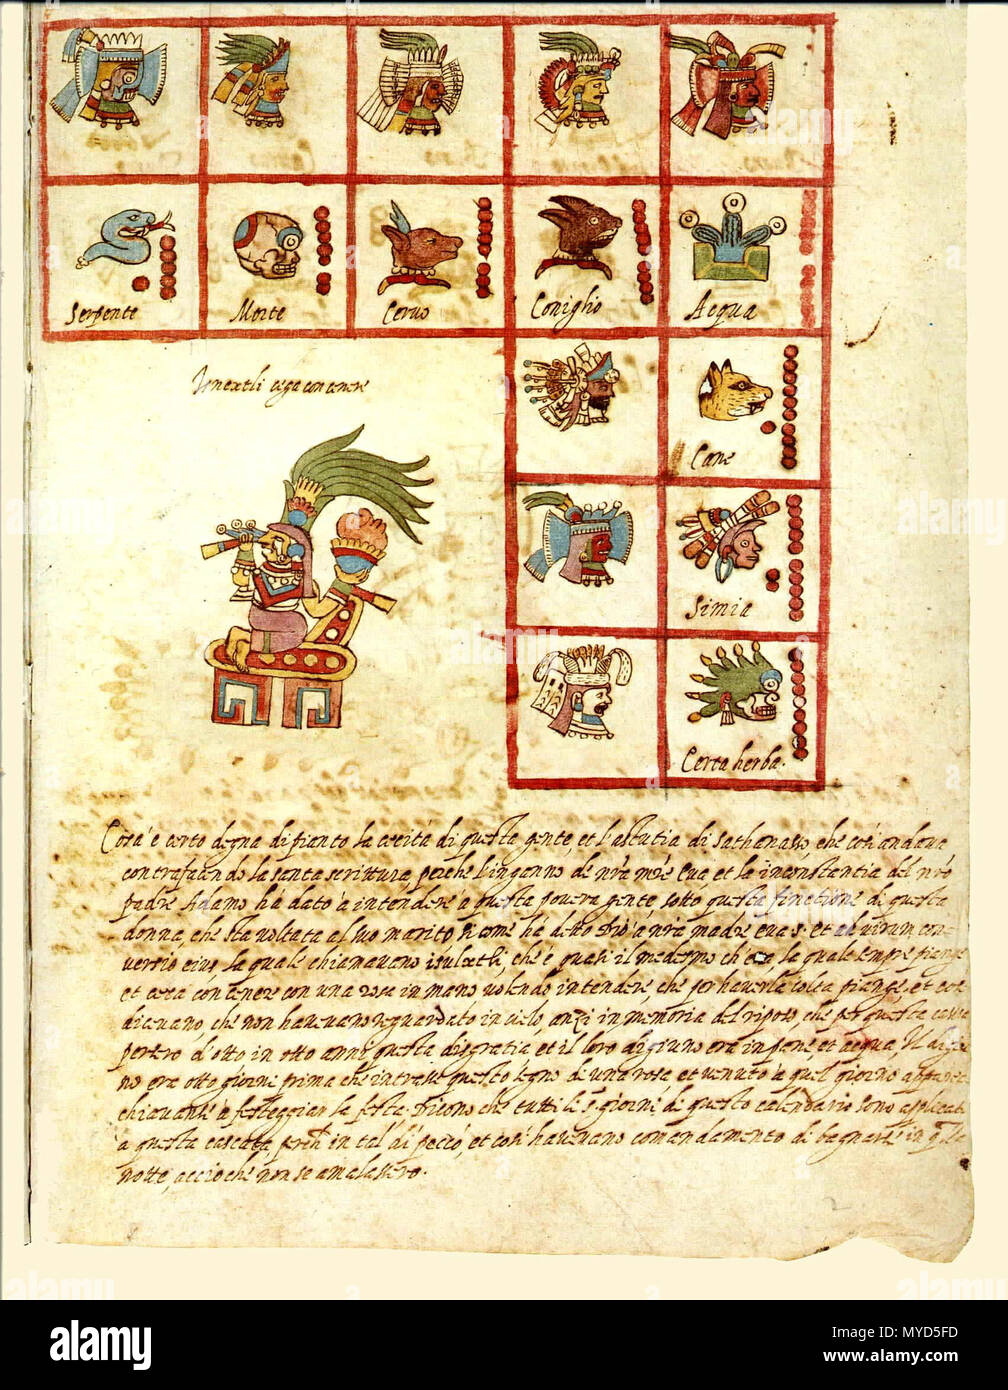 Serpente
Morte
Cervo
Coniglio
Aequa
Cane
Simia
Certa herba.
Cosa è certo degna di pianto la cecità di questa gente, et l'astutia di Sathanasso, che così andava
contrafacendo la santa scrittura, perche l'inganno de nr̃a mr̃e Eva et la inconstantia del nr̃o
padre Adamo hà dato à intendere à questa povera gente sotto questa finctione di questa
donna, che sta voltata al suo marito si come hà detto Dio à nr̃a madre eva s. et ad virum con-
versio eius, la quale chiamavano isulextli, che è quasi il medesmo ch'eva, la quale sempre piange
et cieca con cenere con una rosa in mano volendo intendere, che per haverla colta piange, et
dicevano, che non havevano reguardato in cielo, anzi in memoria del riposo, che per questa causa
persero d'otto in otto anni questa disgratia et il loro digiuno era in pane et aequa, Il digiu-
no era otto giorni prima che intrasse questo segno di una rosa et venuto à quel giorno apparec-
chiavansi à festeggiar la festa. Dicono che tutti li 5. giorni di questo calendario sono applicati
à questa cascata, perch̃ in tal' dì peccò, et così havevano comandamento di bagnarse in q̃lla
notte, accioche non se amalassero.
alamy
Image ID: MYD5FD
www.alamy.com